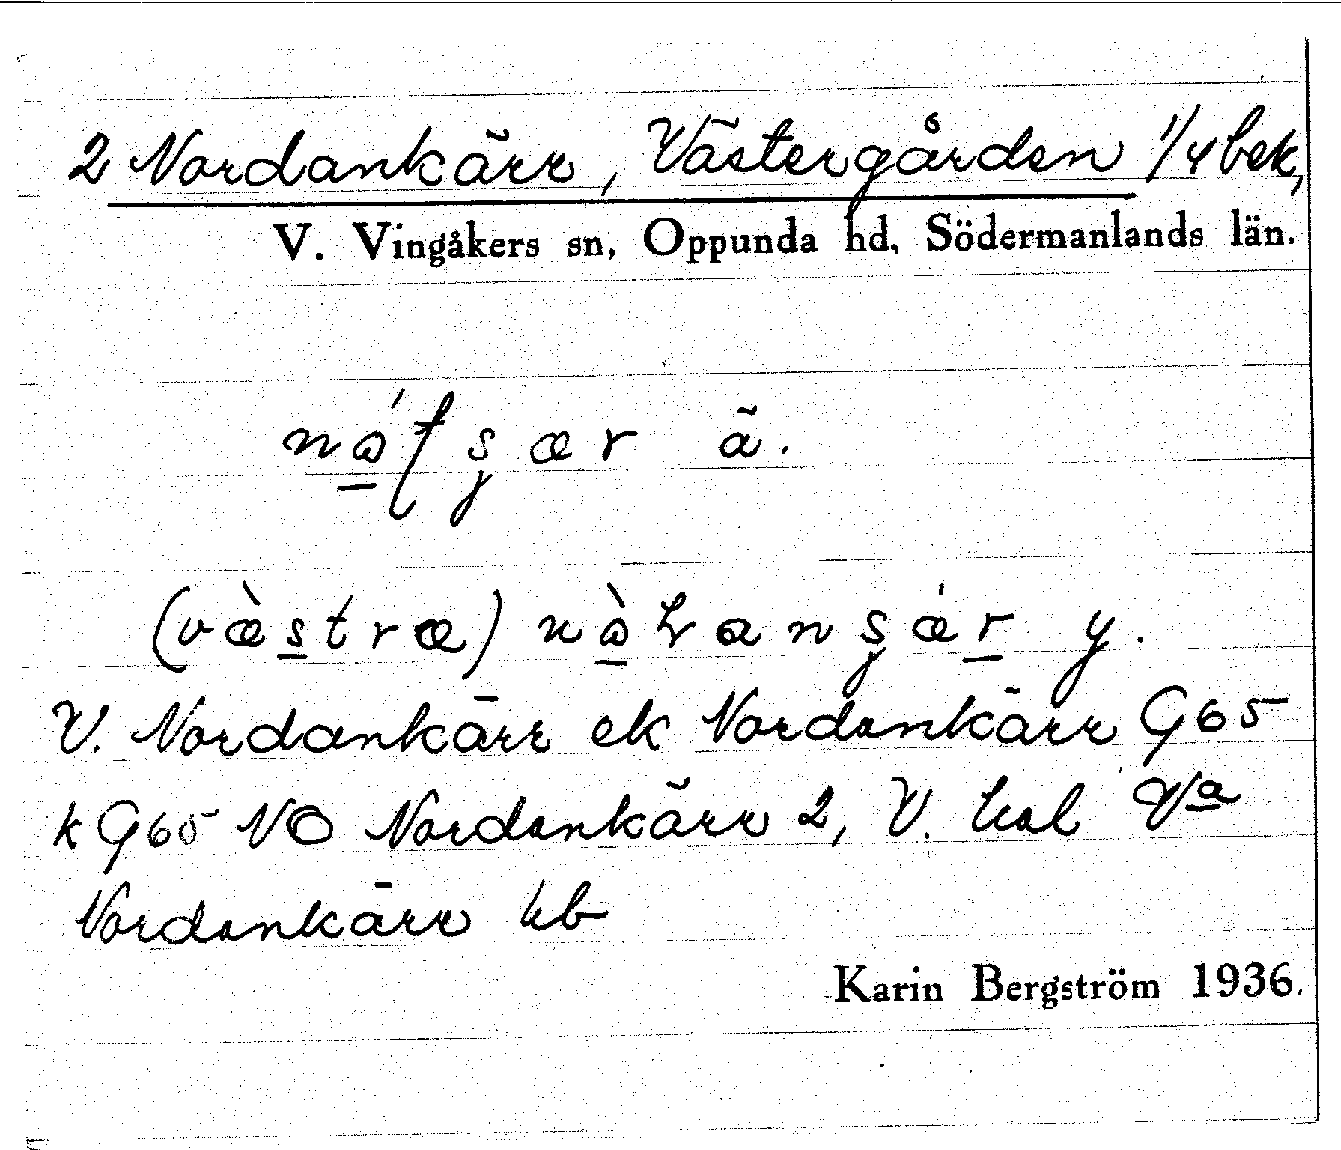 2 Nordankärr, Västergården 1/4 bek,
V. Vingåkers sn, Oppunda hd, Södermanlands län.
ä.
(västra) y.
V. Nordankärr ek Nordankärr G65
k G65 NO Nordankärr 2, V. hal Va
Nordankärr hb
Karin Bergström 1936.